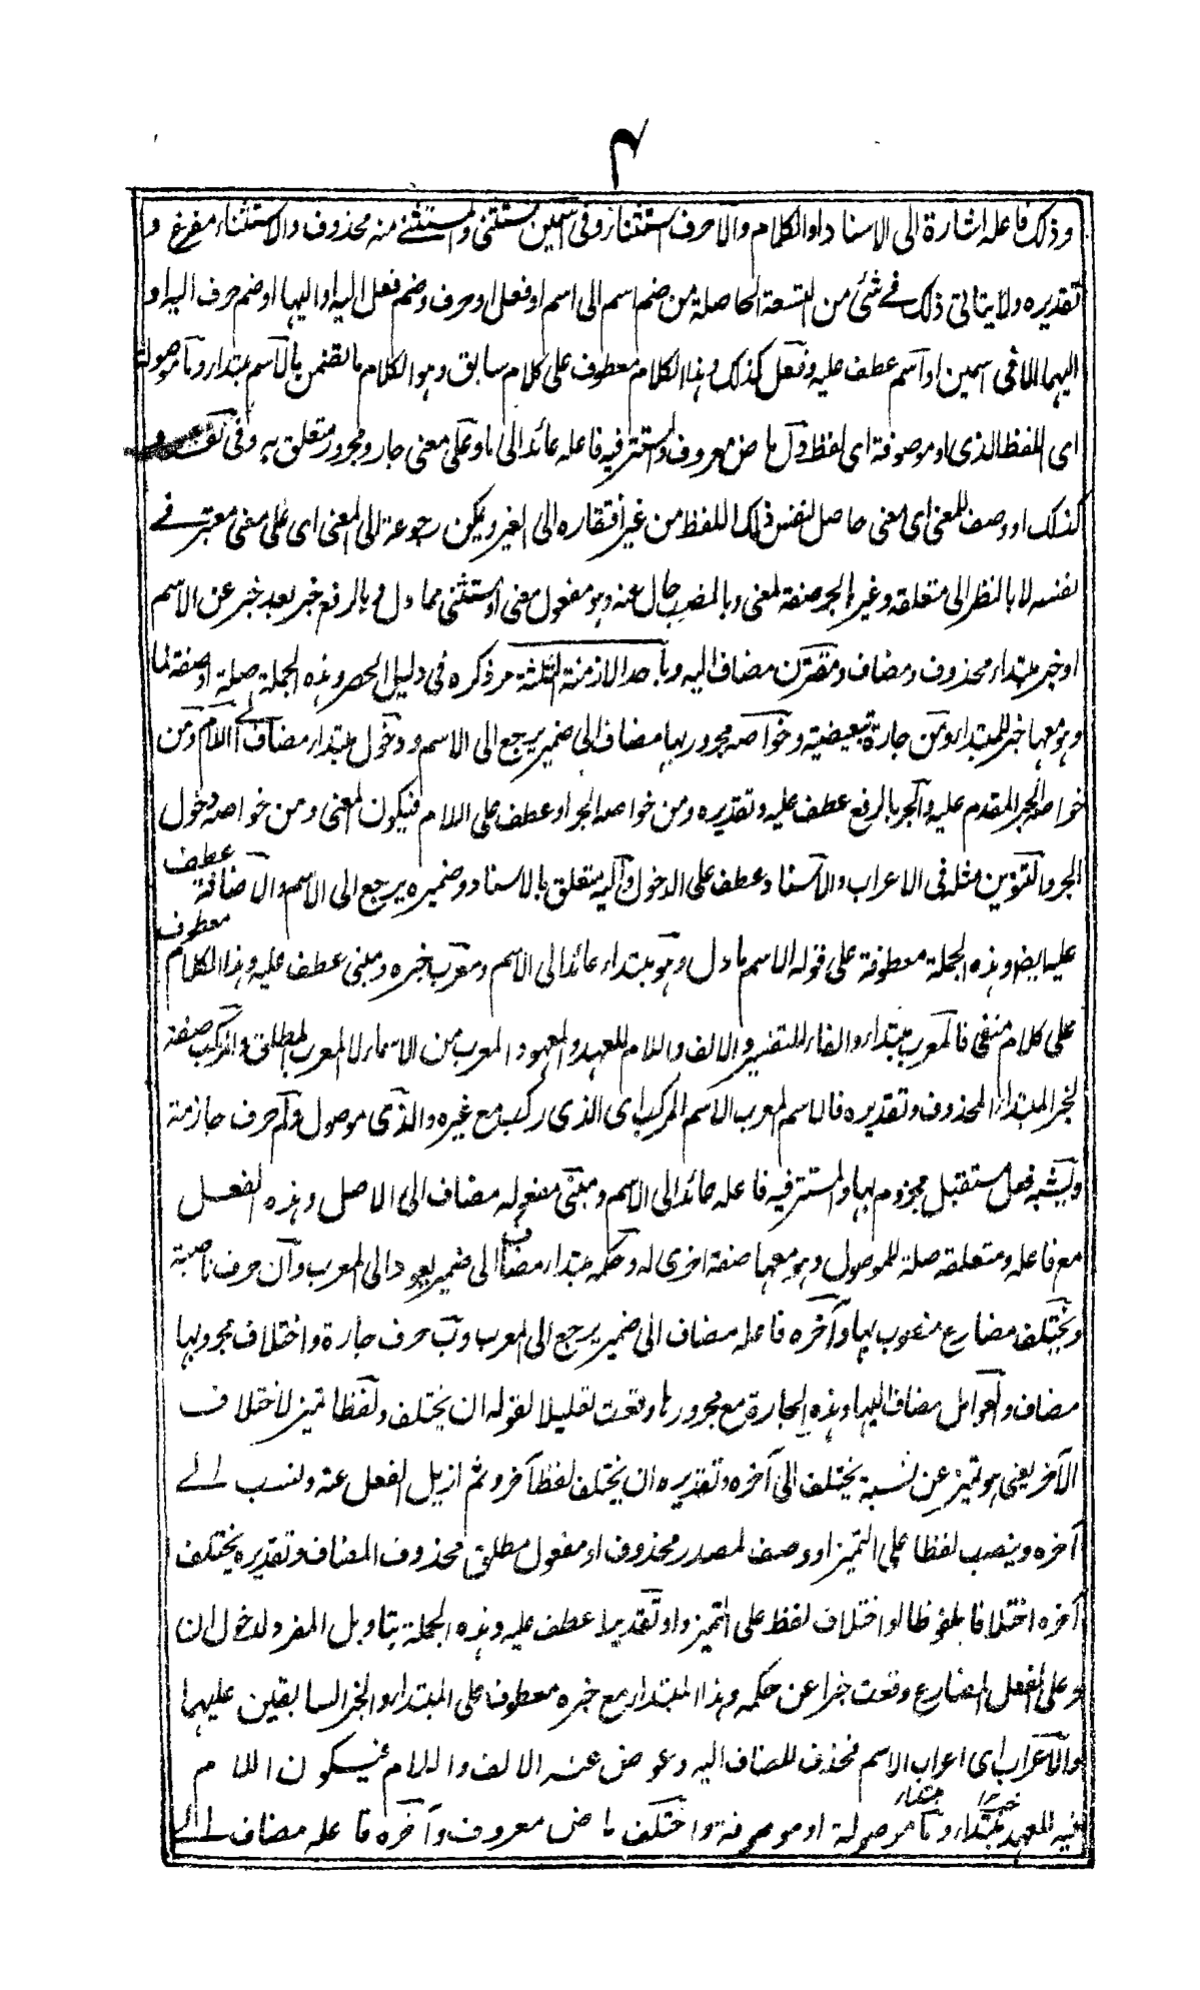 ٣
وذلك فاعله اشارة الى الاسناد او الكلام والا حرف استثناء وفى اسمين مستثنى والمستثنے منه محذوف والاستثناء مفرغ و
تقديره ولا يتاتى ذلك فے شئ من التسعة الحاصلة من ضم اسم الى اسم او فعل او حرف وضم فعل اليه او اليها او ضم حرف اليه او
اليهما الا فى اسمين او اسم عطف عليه وفعل كذلك وهذا الكلام معطوف على كلام سابق وهو الكلام ما تضمن بالاسم مبتداء وما موصولة
اى اللفظ الذى او موصوفة اى لفظ ودل ماض معروف والمستتر فيه فاعله عائد الى ما وعلى معنى جار ومجرور متعلق به وفى نفسه
كذلك او وصف للمعنى اى معنى حاصل لنفس ذلك اللفظ من غير افتقاره الى الغير ويمكن رجوعه الى المعنى اى على معنى معتبر فے
نفسه لا بالنظر الى متعلقه وغير بالجر صفة لمعنى وبالنصب حال عنه وهو مفعول معنى او استثنى مما دل وبالرفع خبر بعد خبر عن الاسم
او خبر مبتداء محذوف ومضاف ومقترن مضاف اليه وباحد الازمنة الثلثة مر ذكره فى دليل الحصر وهذه الجملة صلة او صفة لما
وهو معها خبر للمبتداء ومن جارة تبعيضية وخواصه مجرور بها مضاف الى ضمير يرجع الى الاسم ودخول مبتداء مضاف الے اللام ومن
خواصه الخبر المقدم عليه والجر بالرفع عطف عليه وتقديره ومن خواصه الجر او عطف على اللام فيكون المعنى ومن خواصه دخول
الجر والتنوين مثله فى الاعراب والاسناد عطف على الدخول واليه متعلق بالاسناد وضميره يرجع الى الاسم والاضافة عطف
عليه ايضا وهذه الجملة معطوفة على قوله الاسم ما دل وهو مبتداء عائد الى الاسم ومعرب خبره ومبنى عطف عليه وهذا الكلام معطوف
على كلام منفى فالمعرب مبتداء والفاء للتفسير والالف واللام للعهد والمعهود المعرب من الاسماء لا المعرب المطلق والمركب صفة
لخبر المبتداء المحذوف وتقديره فالاسم المعرب الاسم المركب اى الذى ركب مع غيره والذى موصول ولم حرف جازمة
ويشبه فعل مستقبل مجزوم بها والمستتر فيه فاعله عائد الى الاسم ومبنى مفعوله مضاف الى الاصل وهذه الفعل
مع فاعله ومتعلقه صلة للموصول وهو معها صفة اخرى له وحكمه مبتداء مضاف الى ضمير يعود الى المعرب وان حرف ناصبة
ويختلف مضارع منصوب بها وآخره فاعله مضاف الى ضمير يرجع الى المعرب وب حرف جارة واختلاف مجرور بها
مضاف والعوامل مضاف اليها وهذه الجارة مع مجرورها وقعت تعليلا لقوله ان يختلف ولفظا تميز لاختلاف
الآخر يعنى هو تميز عن نسبة يختلف الى آخره وتقديره ان يختلف لفظ آخره ثم ازيل الفعل عنه ونسب الے
آخره وينصب لفظا على التميز او وصف لمصدر محذوف او مفعول مطلق محذوف المضاف وتقديره يختلف
آخره اختلافا ملفوظا او اختلاف لفظ على التميز او تقديرا عطف عليه وهذه الجملة بتاويل المفرد لدخول ان
وعلى الفعل المضارع وقعت خبرا عن حكمه وهذا المبتداء مع خبره معطوف على المبتداء والخبر السابقين عليهما
والاعراب اى اعراب الاسم فحذف المضاف اليه وعوض عنه الالف واللام فيكون اللام
فيه للعهد مبتداء وما موصولة او موصوفة واختلف ماض معروف وآخره فاعله مضاف الے